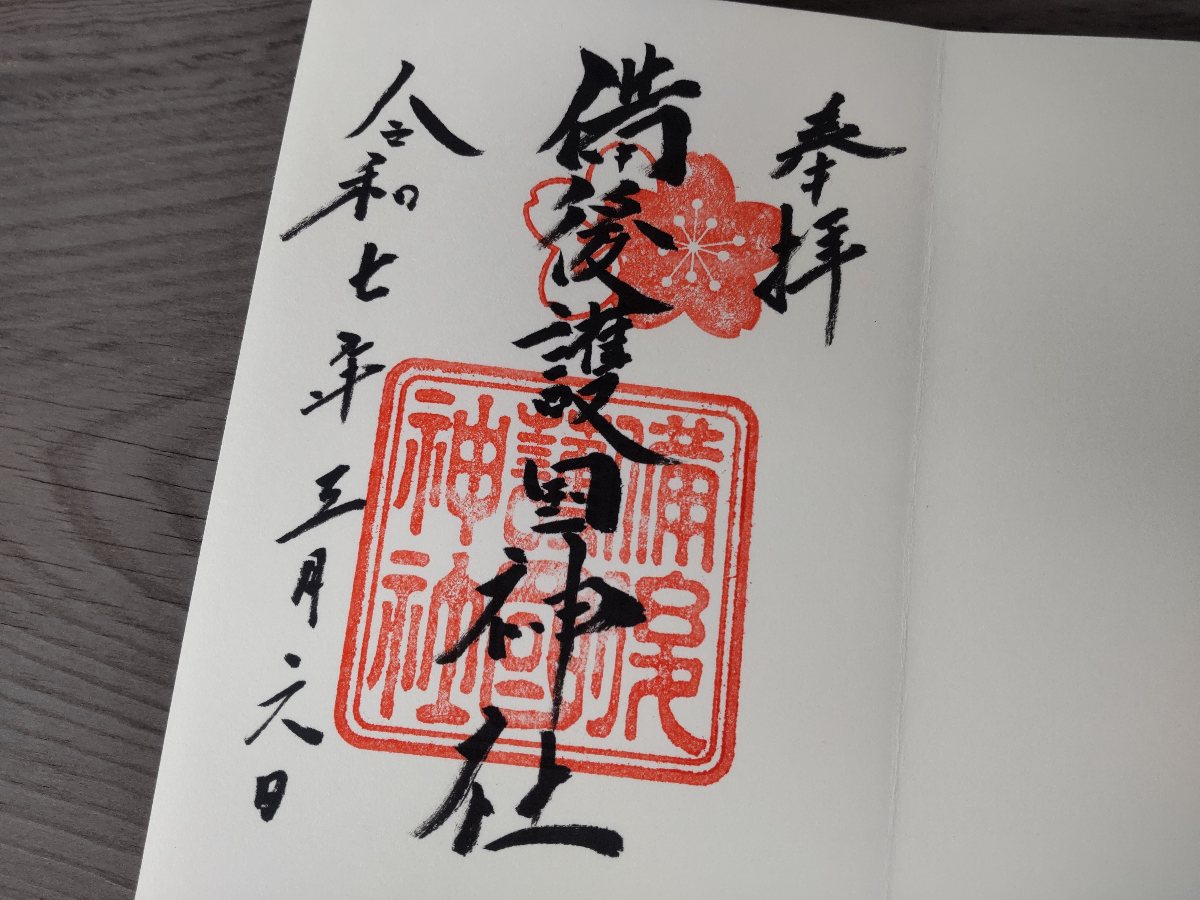 奉拝
備後護国神社
備後
護國
神社
令和七年三月六日